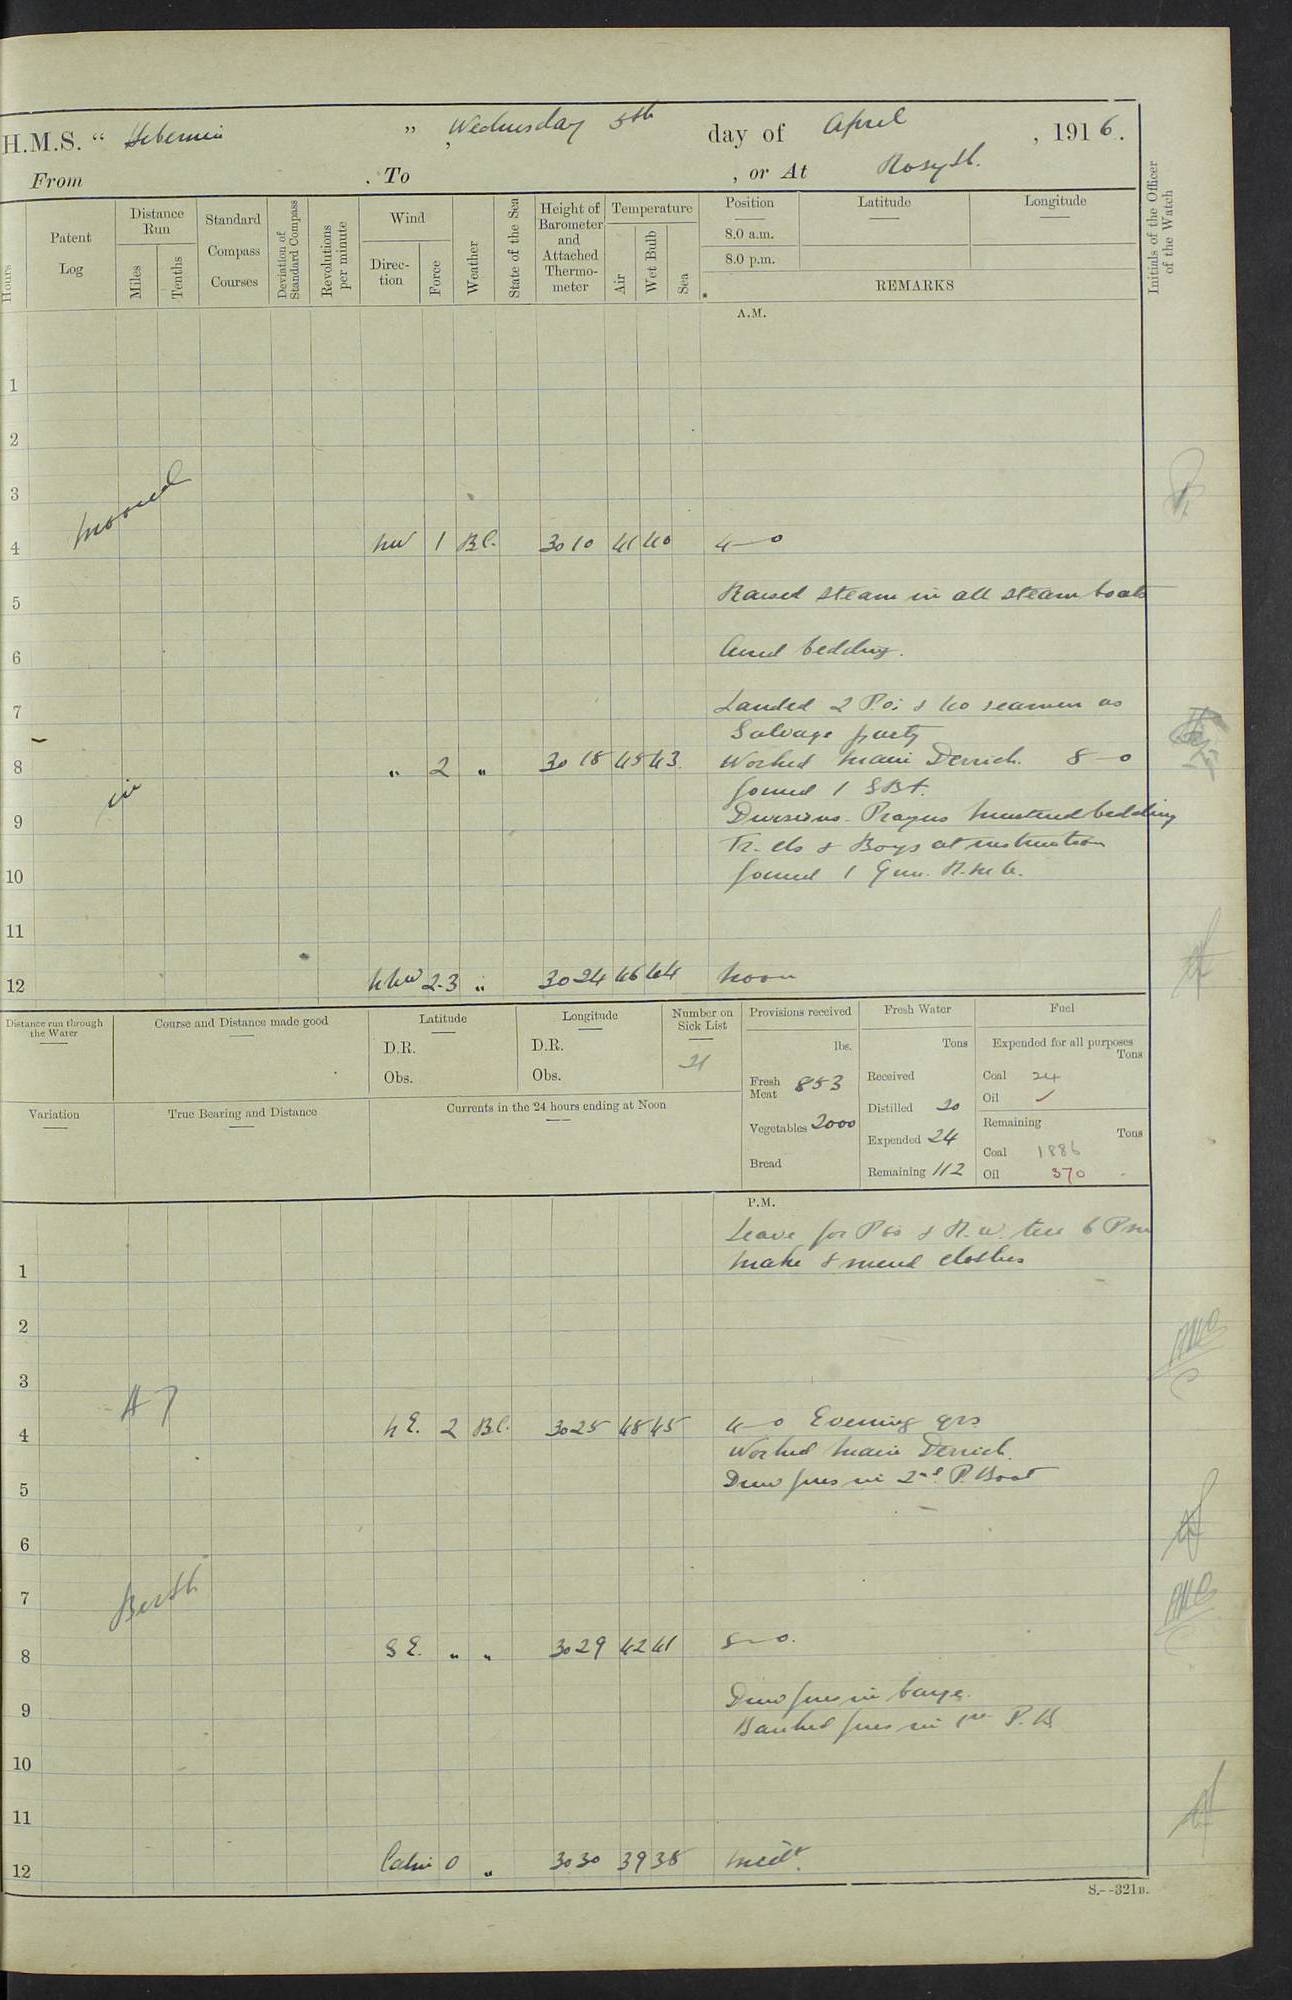 H.M.S. “ Hibernia ” , Wednesday 5th day of April , 1916.
From , To , or At Rosyth.
Hours
Patent Log
Distance Run
Miles
Tenths
Standard Compass Courses
Deviation of Standard Compass
Revolutions per minute
Wind
Direction
Force
Weather
State of the Sea
Height of Barometer and Attached Thermometer
Temperature
Air
Wet Bulb
Sea
Position
8.0 a.m.
8.0 p.m.
Latitude
Longitude
REMARKS
Initials of the Officer of the Watch
A.M.
1
2
3
moored
4 NW 1 B.C. 30 10 41 40 4—0
5 Raised steam in all steam boats
6 Aired bedding.
7 Landed 2 P.O.s & 40 seamen as
Salvage party
8 " 2 " 30 18 45 43 Worked Main Derrick. 8—0
in
Joined 1 SBA.
9 Divisions. Prayers Mustered bedding
& Boys at instruction
10 Joined 1 Gnr. R.M.A.
11
12 NNW 2-3 " 30 24 46 44 Noon
Distance run through the Water
Course and Distance made good
Latitude
D.R.
Obs.
Longitude
D.R.
Obs.
Number on Sick List
21
Variation
True Bearing and Distance
Currents in the 24 hours ending at Noon
Provisions received
lbs.
Fresh Meat 853
Vegetables 2000
Bread
Fresh Water
Tons
Received
Distilled 20
Expended 24
Remaining 112
Fuel
Expended for all purposes
Tons
Coal 24
Oil ✓
Remaining
Tons
Coal 1886
Oil 370
P.M.
Leave for P.O.s & till 6 P.m
1 Make & mend clothes
2
3
A 7
4 N E. 2 B.C. 30 25 48 45 4—0 Evening qrs
Worked Main Derrick.
5 Drew fires in 2nd P. Boat
6
7
Berth
8 S E. " " 30 29 42 41 8—0.
Drew fires in barge.
9 Banked fires in 1st P. B
10
11
12 Calm 0 " 30 30 39 38 Midt.
S.--321B.